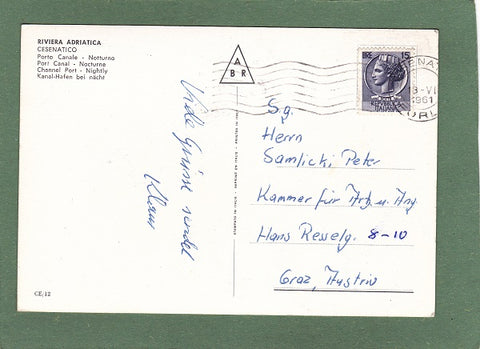 RIVIERA ADRIATICA
CESENATICO
Porto Canale - Notturno
Port Canal - Nocturne
Channel Port - Nightly
Kanal-Hafen bei nächt
A
B R
15
1961
Viele Grüsse sendet
Klaus
S.g.
Herrn
Samlicki Peter
Kammer für Arb. u. Ang.
Hans Resselg. 8-10
Graz, Austria
CE/12